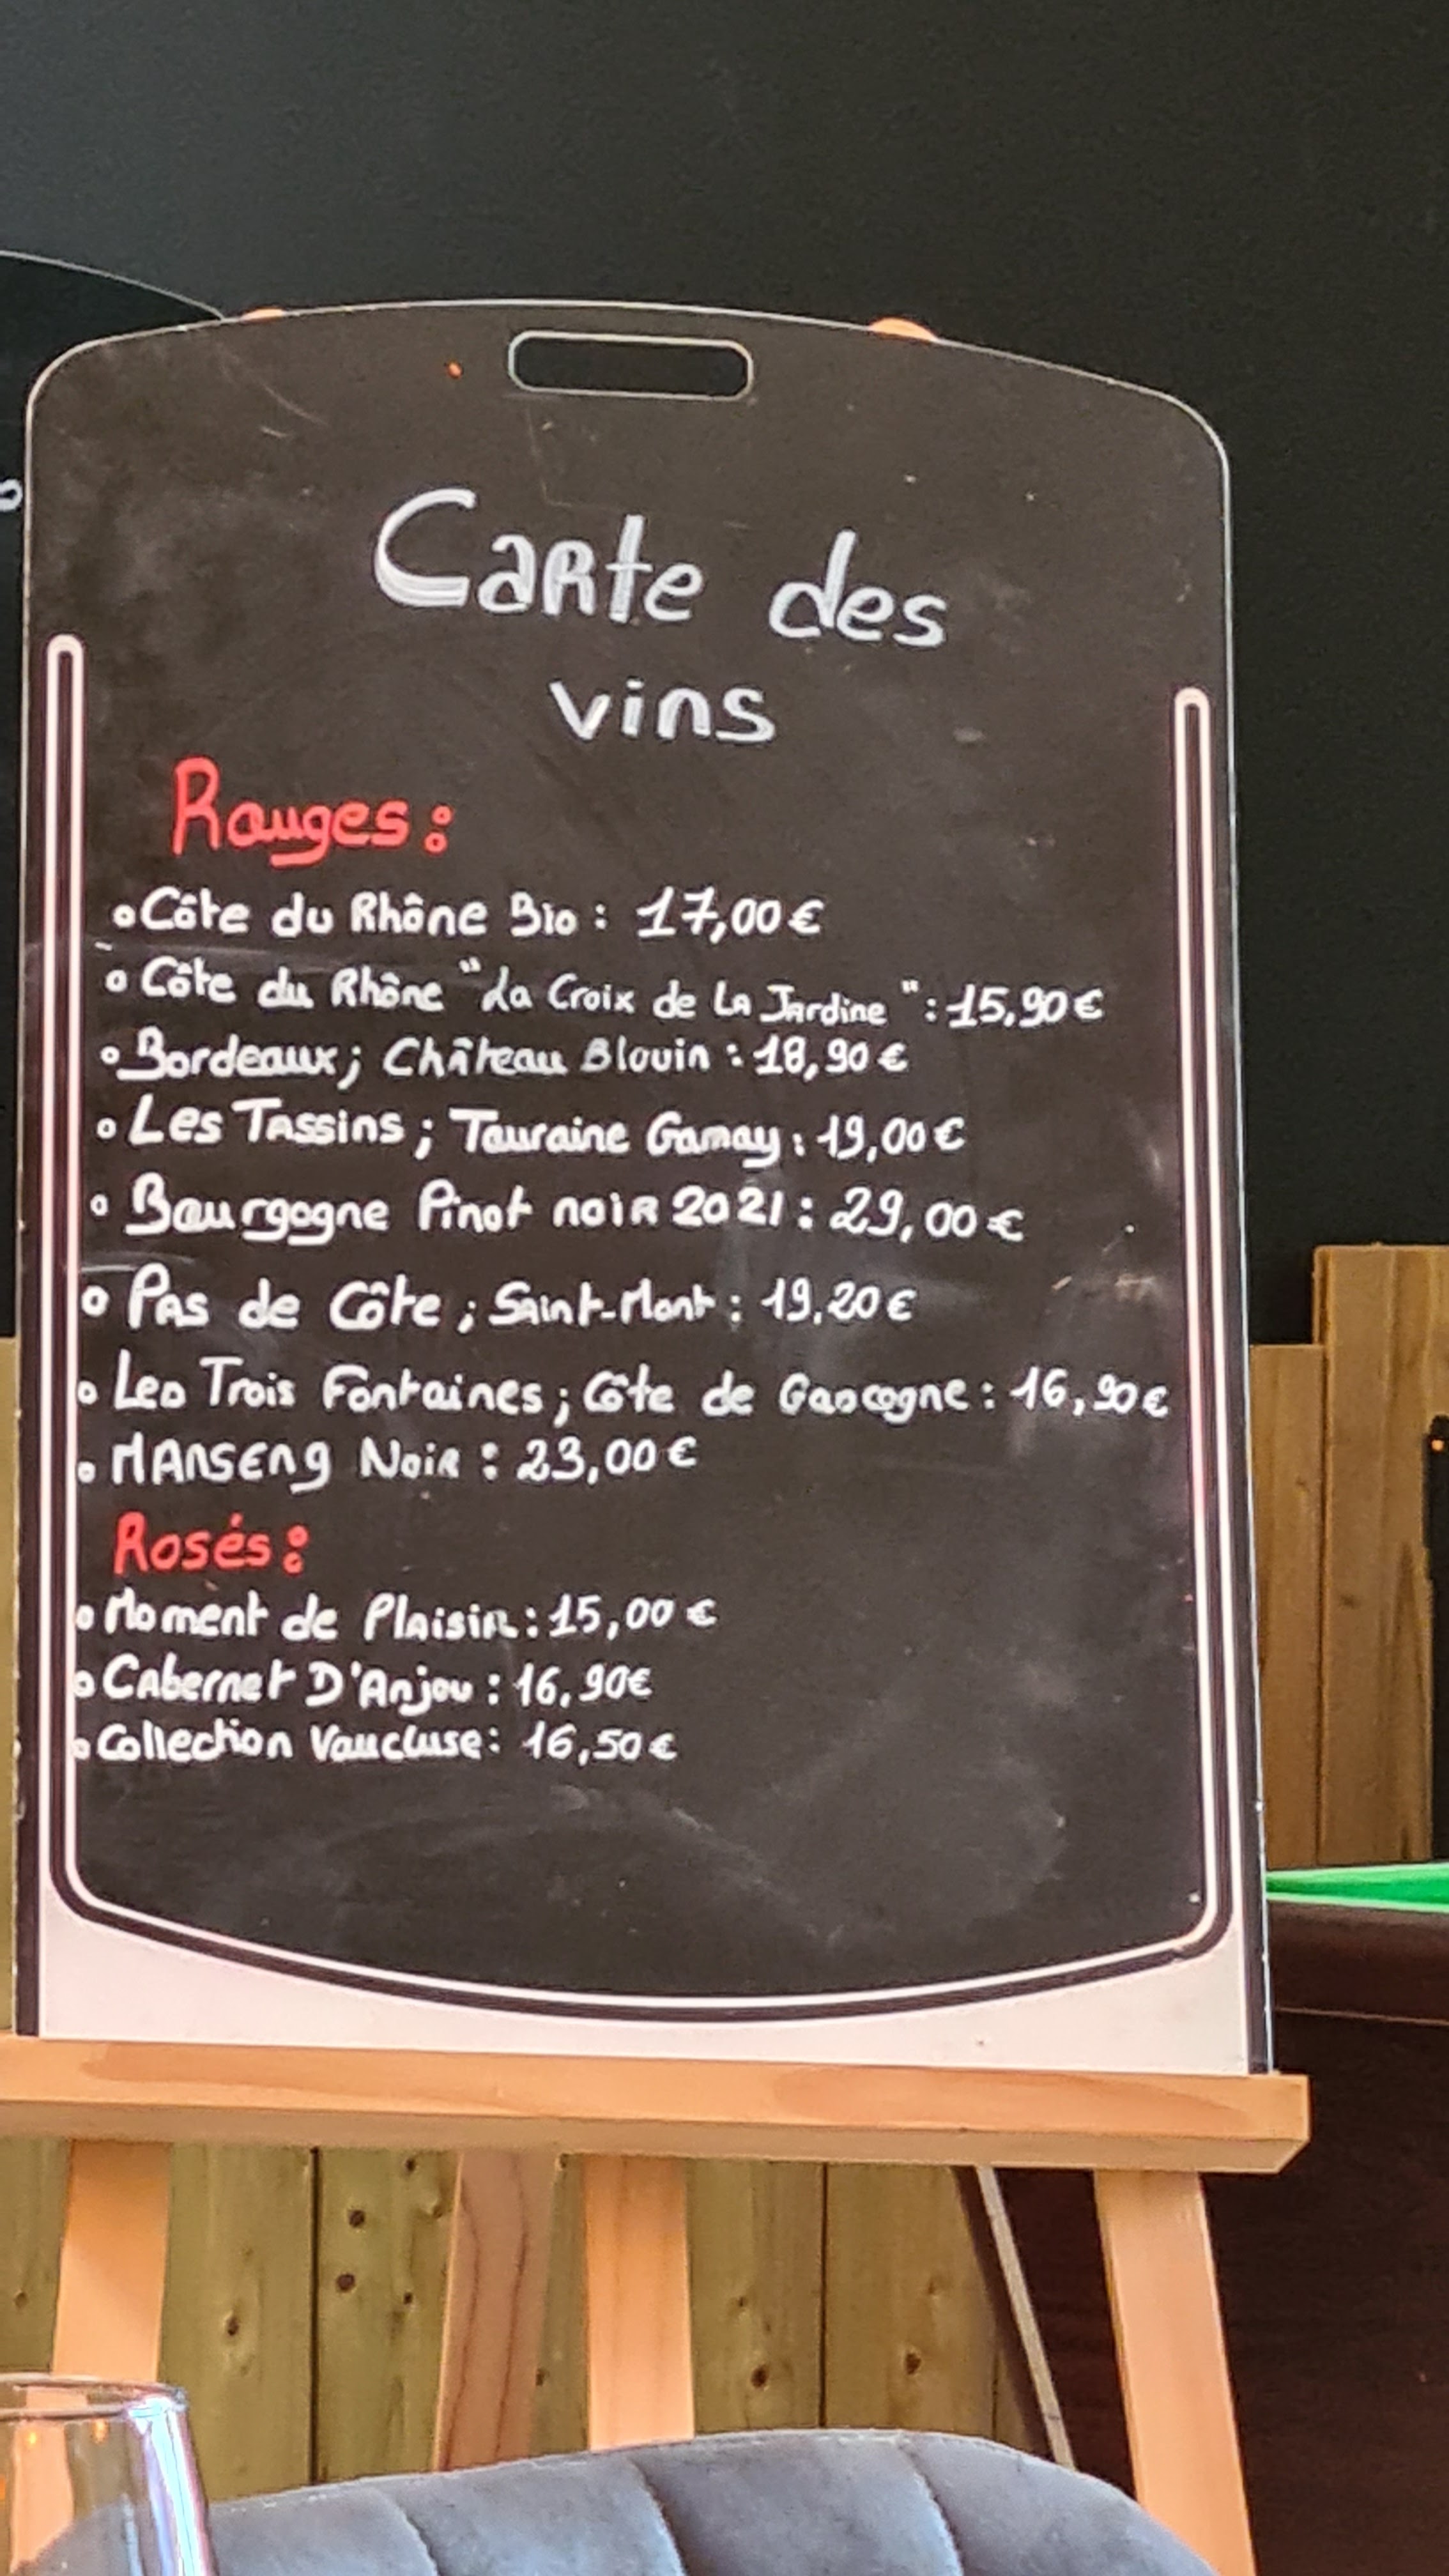 Carte des
vins
Rouges :
Côte du Rhône Bio : 17,00 €
Côte du Rhône "La Croix de La Jardine" : 15,90 €
Bordeaux ; Château Blouin : 18,90 €
Les Tassins ; Touraine Gamay : 19,00 €
Bourgogne Pinot noir 2021 : 29,00 €
Pas de Côte ; Saint-Mont : 19,20 €
Les Trois Fontaines ; Côte de Gascogne : 16,90 €
Manseng Noir : 23,00 €
Rosés :
Moment de Plaisir : 15,00 €
Cabernet D'Anjou : 16,90 €
Collection Vaucluse : 16,50 €